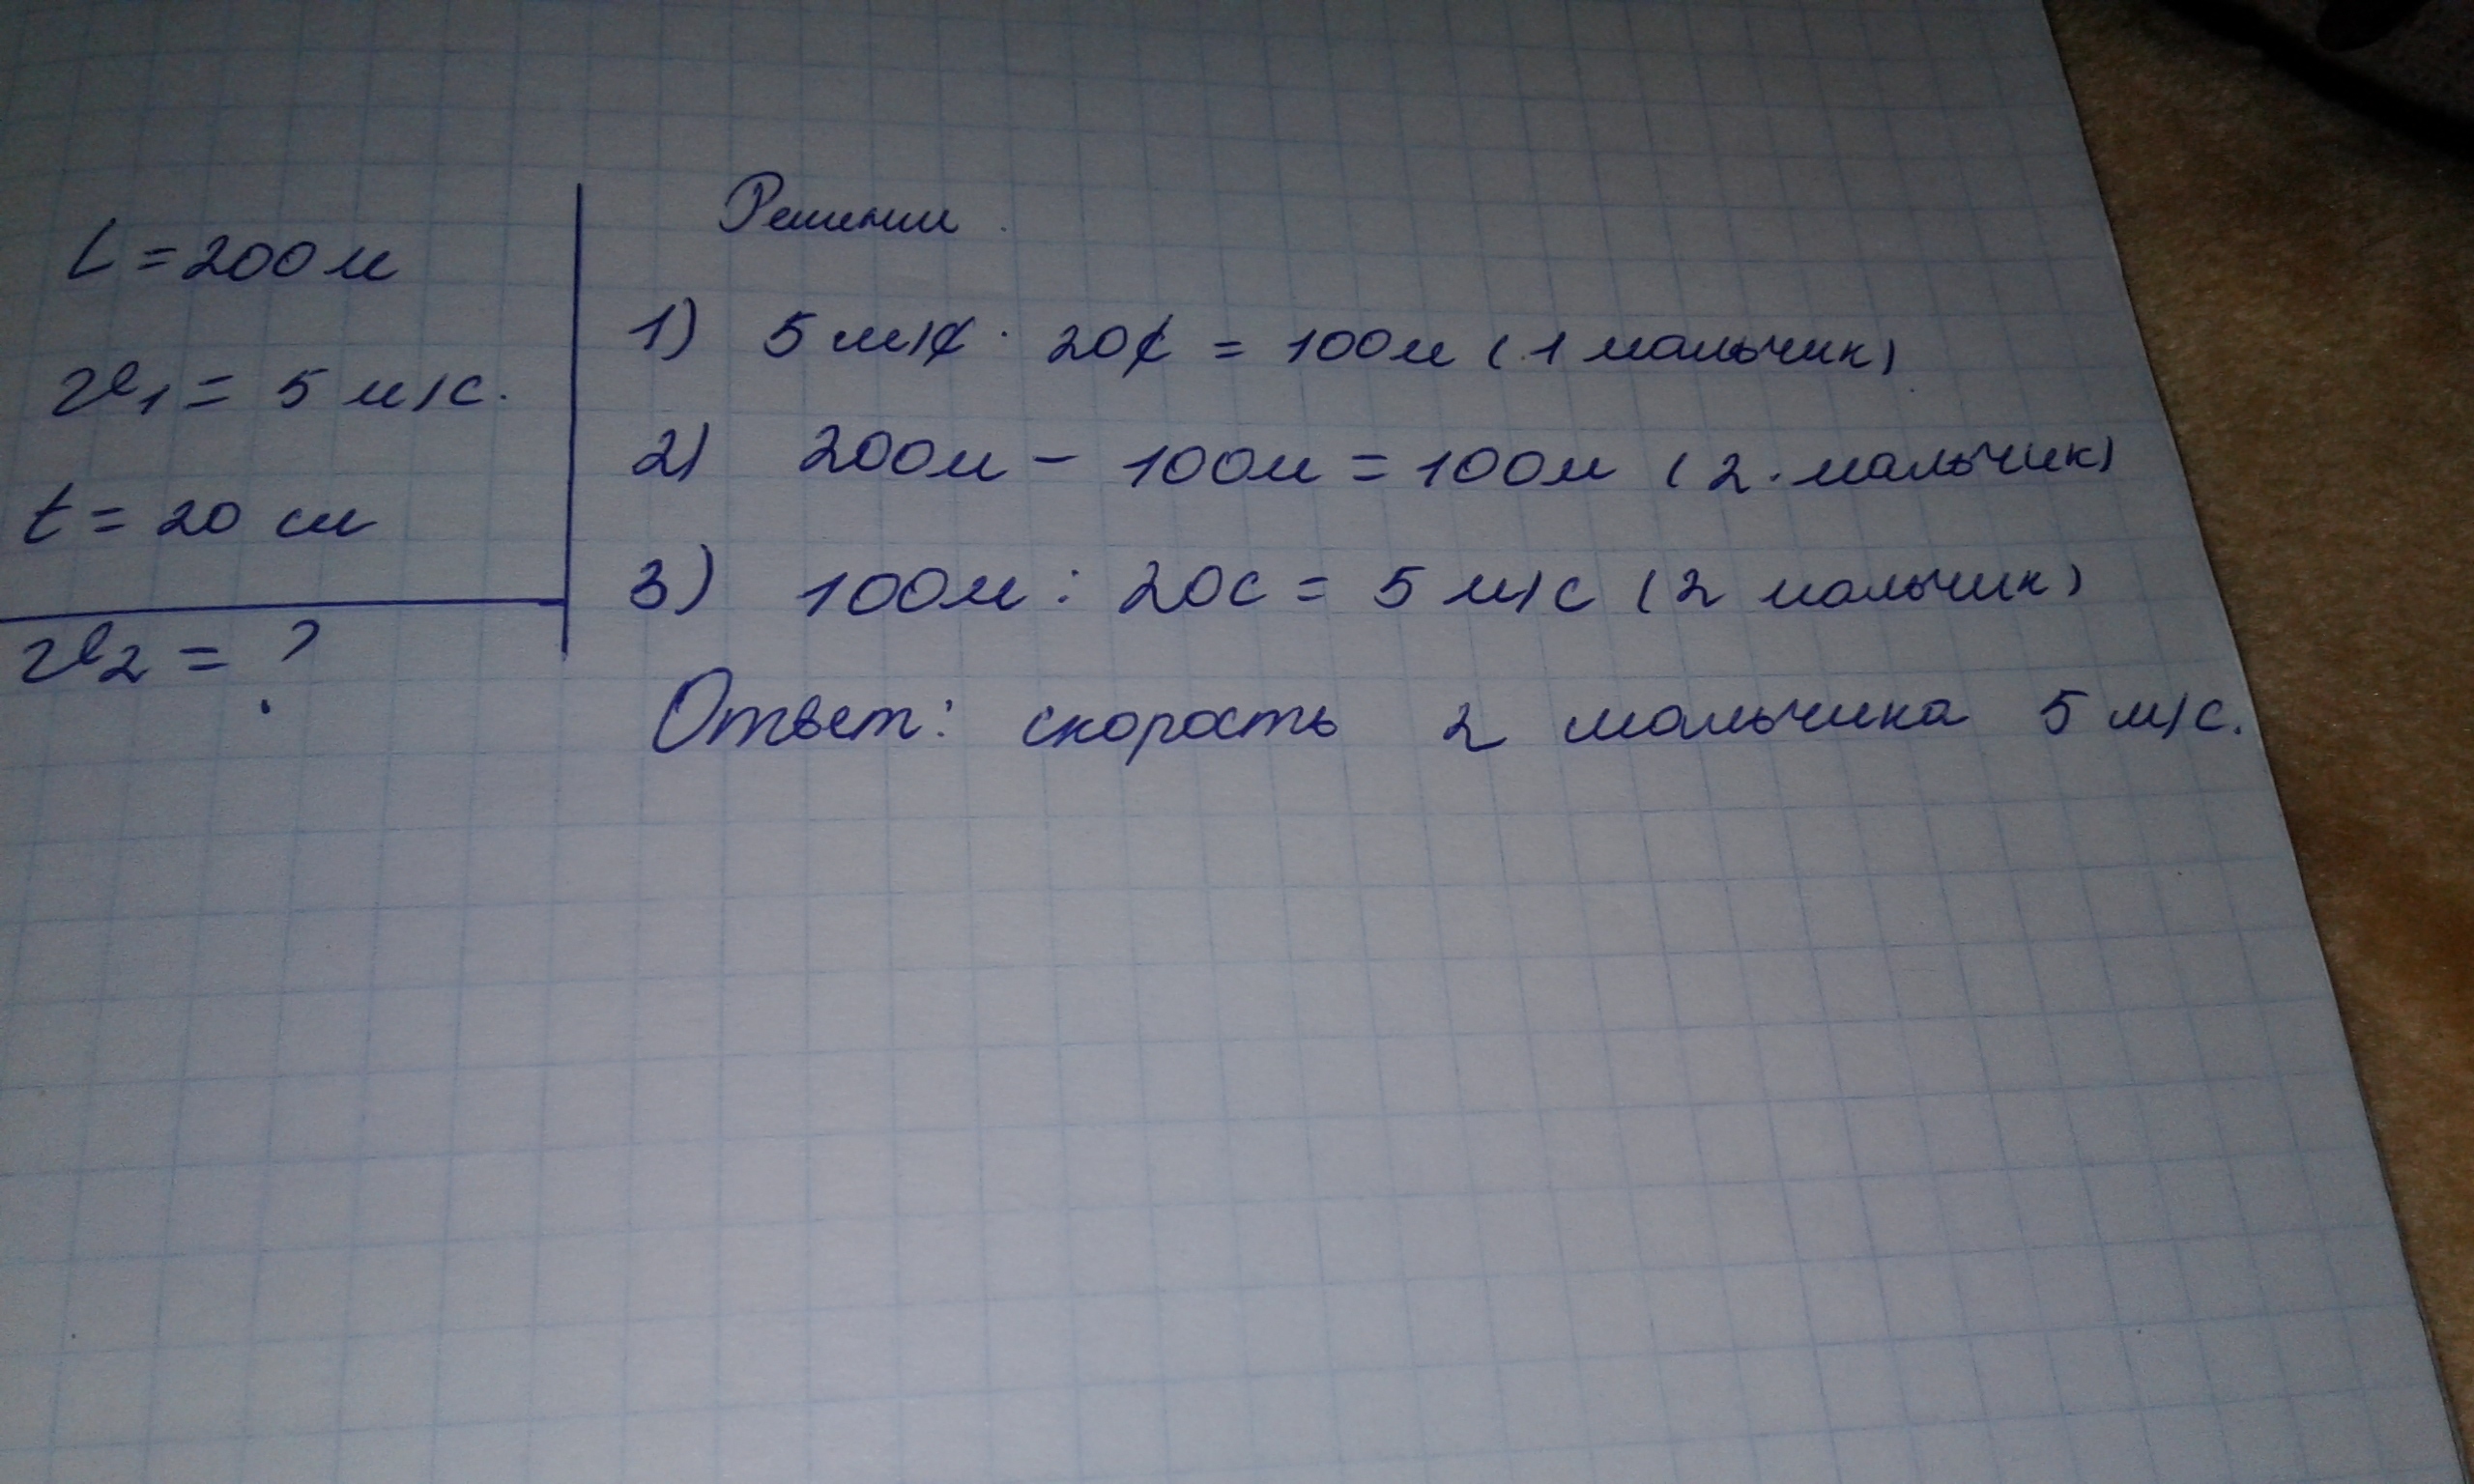 L = 200 м
v₁ = 5 м/с.
t = 20 см
v₂ = ?
Решении
1) 5 м/с · 20с = 100м (1 мальчик)
2) 200м - 100м = 100м (2 мальчик)
3) 100м : 20с = 5 м/с (2 мальчик)
Ответ: скорость 2 мальчика 5 м/с.